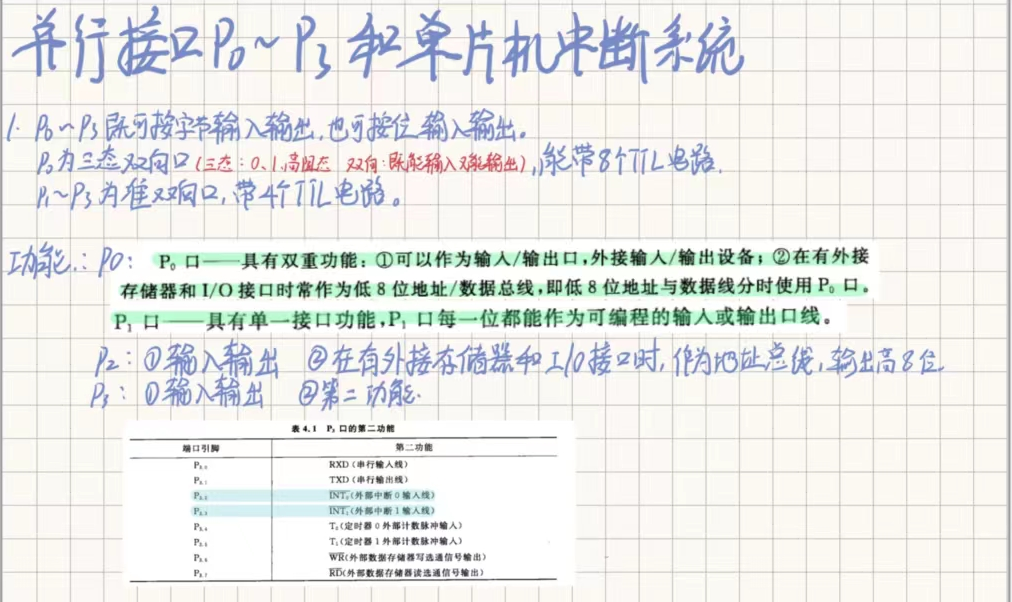 并行接口P₀~P₃和单片机中断系统
1. P₀~P₃既可按字节输入输出,也可按位输入输出。
P₀为三态双向口(三态:0、1、高阻态 双向:既能输入又能输出),能带8个TTL电路.
P₁~P₃为准双向口,带4个TTL电路。
功能.: P0: P₀ 口——具有双重功能:①可以作为输入/输出口,外接输入/输出设备;②在有外接
存储器和 I/O 接口时常作为低 8 位地址/数据总线,即低 8 位地址与数据线分时使用 P₀ 口。
P₁ 口——具有单一接口功能,P₁ 口每一位都能作为可编程的输入或输出口线。
P₂: ①输入输出 ②在有外接存储器和I/O接口时,作为地址总线,输出高8位
P₃: ①输入输出 ②第二功能.
表 4.1 P₃ 口的第二功能
端口引脚 第二功能
P₃.₀ RXD(串行输入线)
P₃.₁ TXD(串行输出线)
P₃.₂ I̅N̅T̅₀(外部中断 0 输入线)
P₃.₃ I̅N̅T̅₁(外部中断 1 输入线)
P₃.₄ T₀(定时器 0 外部计数脉冲输入)
P₃.₅ T₁(定时器 1 外部计数脉冲输入)
P₃.₆ W̅R̅(外部数据存储器写选通信号输出)
P₃.₇ R̅D̅(外部数据存储器读选通信号输出)